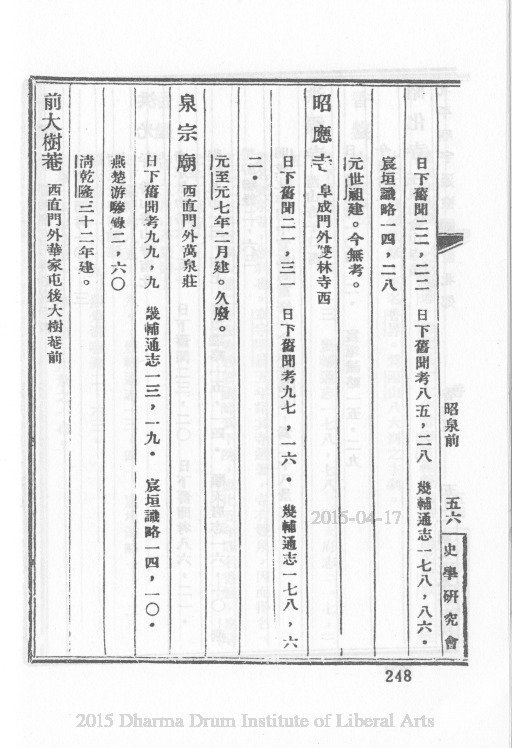 日下舊聞二二，二二　日下舊聞考八五，二八　畿輔通志一七八，八六．
宸垣識略一四，二八
元世祖建。今無考。
昭應寺　阜成門外雙林寺西
日下舊聞二一，三一　日下舊聞考九七，一六．　畿輔通志一七八，六
二．
元至元七年二月建。久廢。
泉宗廟　西直門外萬泉莊
日下舊聞考九九，九　畿輔通志一三，一九．　宸垣識略一四，一〇．
燕楚游驂錄二，六〇
清乾隆三十二年建。
前大樹菴　西直門外華家屯後大樹菴前
昭泉前　五六
史學研究會
2015-04-17
248
2015 Dharma Drum Institute of Liberal Arts